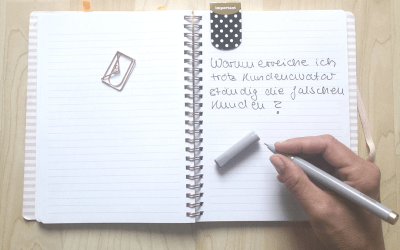 Warum erreiche ich
trotz Kundenavatar
ständig die falschen
Kunden?